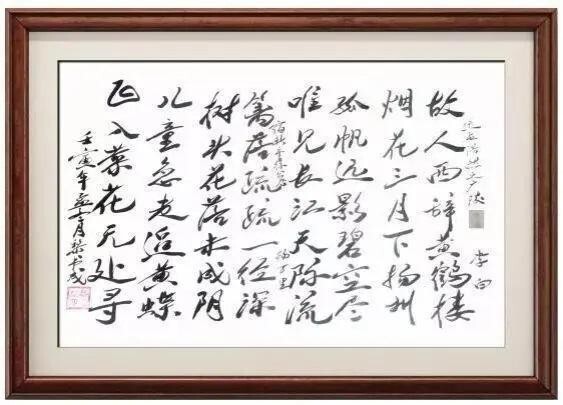 送孟浩然之广陵
李白
故人西辞黄鹤楼
烟花三月下扬州
孤帆远影碧空尽
唯见长江天际流
宿新市徐公店
杨万里
篱落疏疏一径深
树头花落未成阴
儿童急走追黄蝶
飞入菜花无处寻
壬寅年